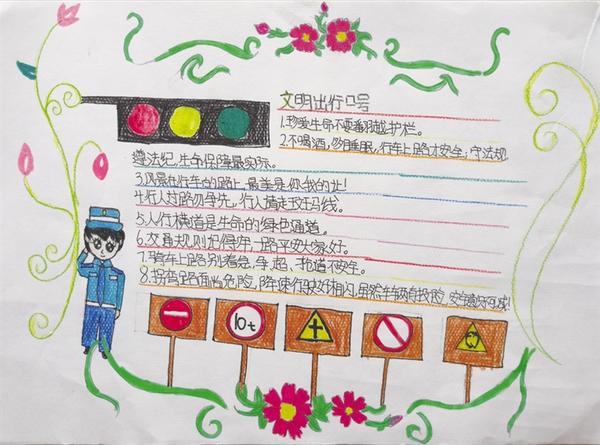 文明出行口号
1.珍爱生命不要翻越护栏。
2.不喝酒,够睡眠,行车上路才安全,守法规
遵法纪,生命保障最实际。
3.风景在行车的路上,最美是你我的让!
4.行人过路勿争先,行人请走斑马线。
5.人行横道是生命的绿色通道。
6.交通规则记得牢 一路平安大家好。
7.骑车上路别着急,争、超、抢道不安全。
8.拐弯路面当危险,降速行驶
10t